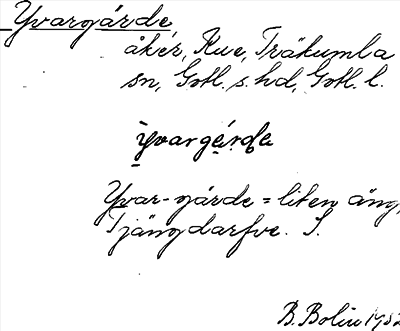 Yvargárde
åker, Kue, Träkumla
sn, Gotl. s. hd, Gotl. l.
yvargárdɐ
Yvar-gárde = liten äng,
Tjängdarfve. S.
B. Bolin 1932